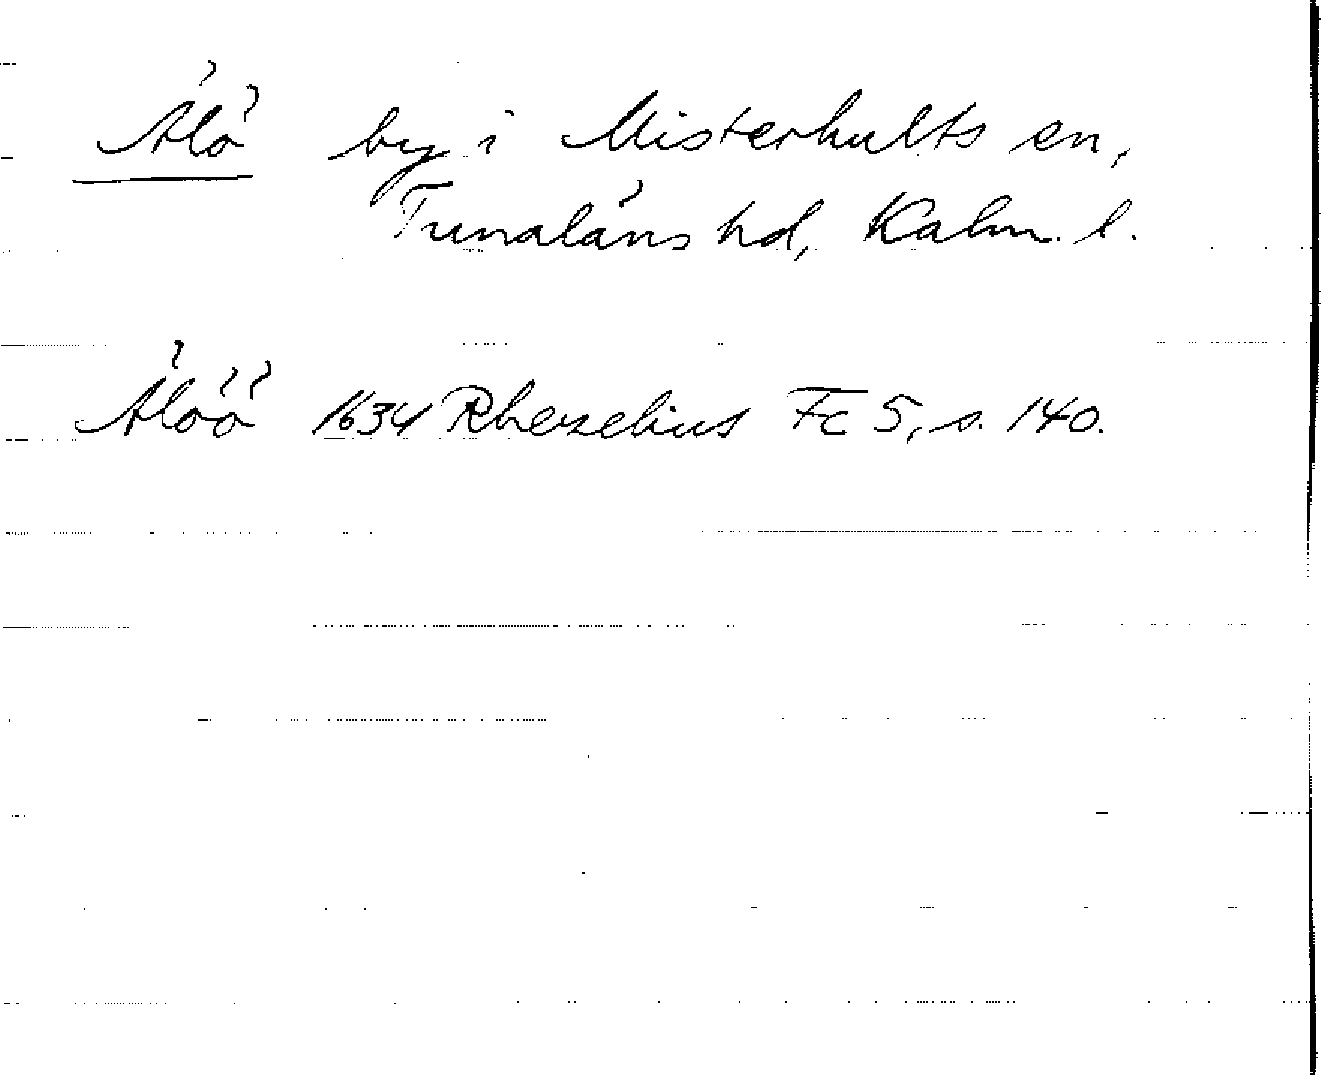 Älö by i Misterhults sn,
Tunaläns hd, Kalm. l.
Älöö 1634 Rhezelius Fc 5, s. 140.